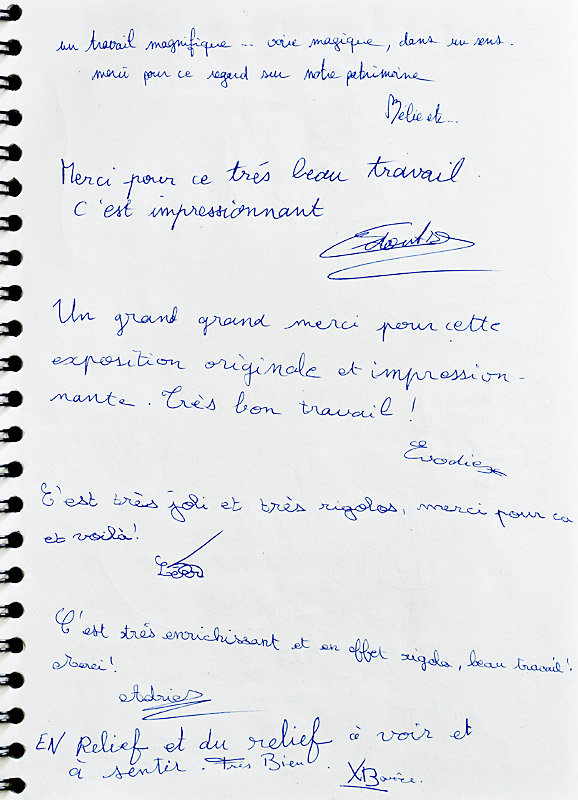 un travail magnifique ... voire magique, dans un sens.
merci pour ce regard sur notre patrimoine
Merci pour ce trés beau travail.
C'est impressionnant
Un grand grand merci pour cette
exposition originale et impression-
nante. Très bon travail !
Evodie
C'est très joli et très rigolos, merci pour ca
et voilà!
C'est trés enrichissant et en effet rigolo, beau travail!
Merci!
Adrien
EN Relief et du relief à voir et
à sentir. Très Bien.